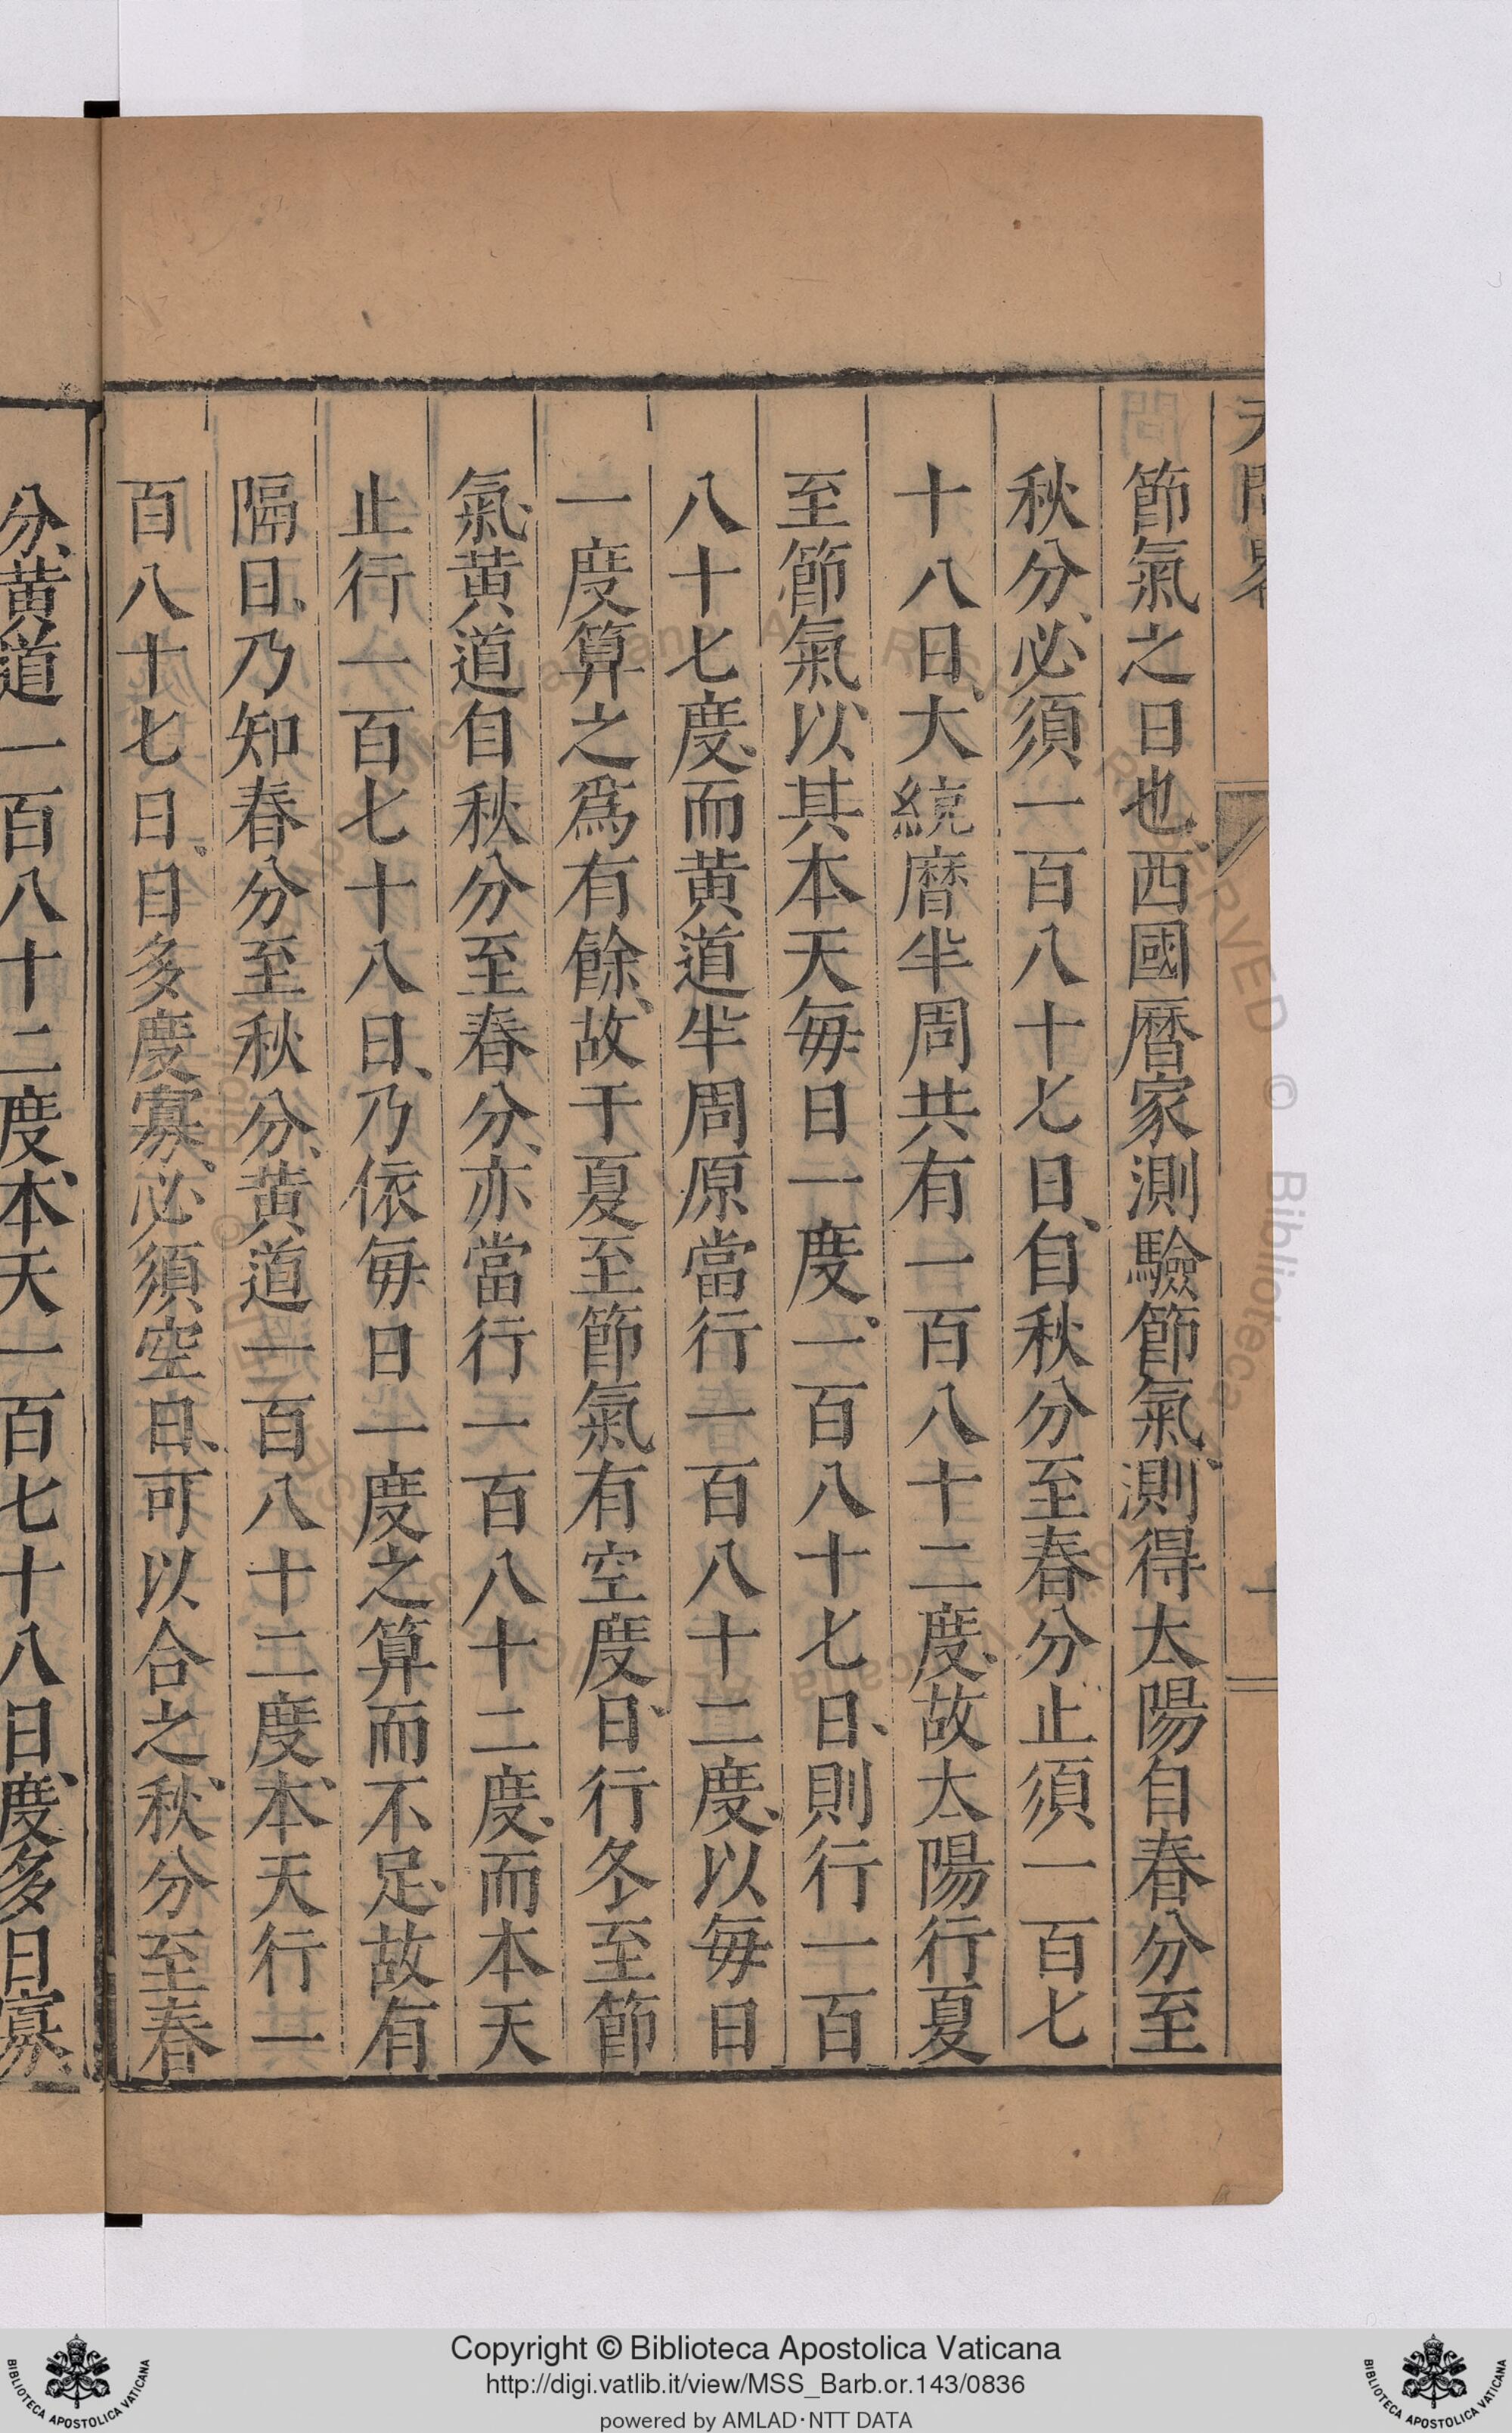 節氣之日也西國曆家測驗節氣測得太陽自春分至
秋分必須一百八十七日自秋分至春分止須一百七
十八日大統曆半周共有一百八十二度故太陽行夏
至節氣以其本天每日一度一百八十七日則行一百
八十七度而黃道半周原當行一百八十二度以每日
一度算之爲有餘故于夏至節氣有空度日行冬至節
氣黃道自秋分至春分亦當行一百八十二度而本天
止行一百七十八日乃依每日一度之算而不足故有
隔日乃知春分至秋分黃道一百八十二度本天行一
百八十七日日多度寡必須空日可以合之秋分至春
分黃道一百八十二度本天一百七十八日度多日寡
Copyright © Biblioteca Apostolica Vaticana
http://digi.vatlib.it/view/MSS_Barb.or.143/0836
powered by AMLAD·NTT DATA
BIBLIOTECA APOSTOLICA VATICANA
BIBLIOTECA APOSTOLICA VATICANA